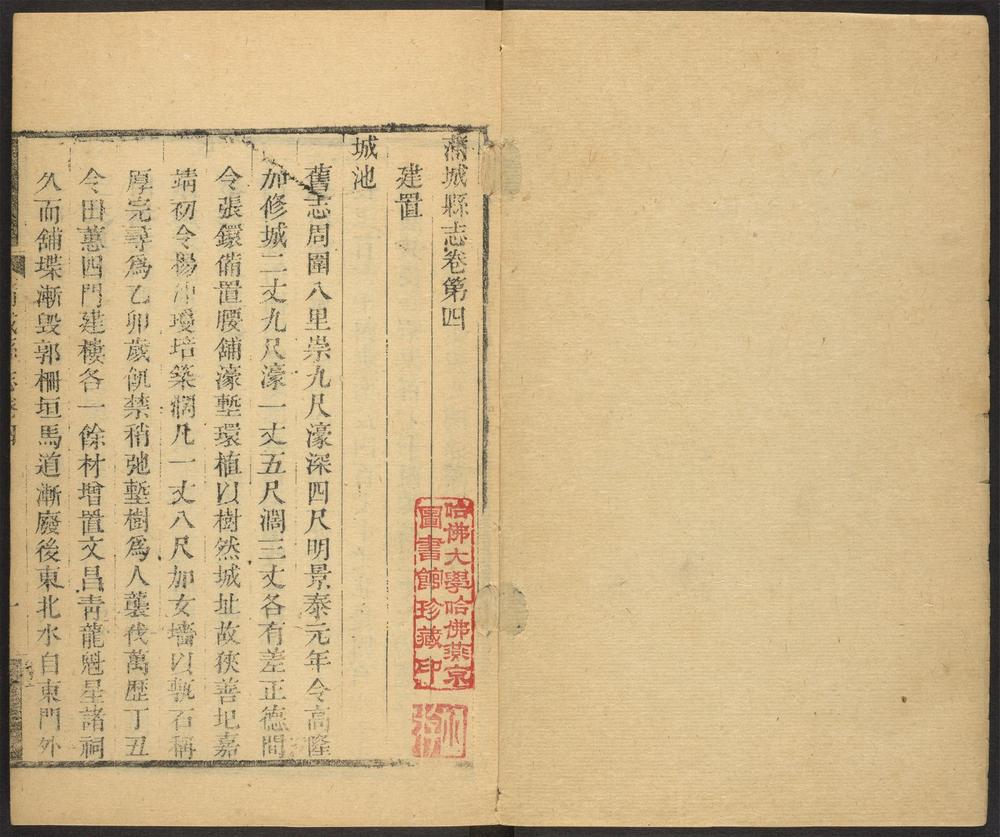 肅城縣志卷第四
建置
城池
舊志周圍八里崇九尺濠深四尺明景泰元年令高隆
加修城二丈九尺濠一丈五尺濶三丈各有差正德間
令張鐶備置腰舖濠塹環植以樹然城址故狹善圮嘉
靖初令楊瓊培築濶凡一丈八尺加女墻以埶石稱
厚完尋爲乙卯歲飢禁稍弛塹樹爲人蘗伐萬歷丁丑
令田蕙四門建樓各一餘材增置文昌靑龍魁星諸祠
久而舖堞漸毀郭柵垣馬道漸廢後東北水自東門外
縣志卷四
一
哈佛大學哈佛燕京
圖書館珍藏印